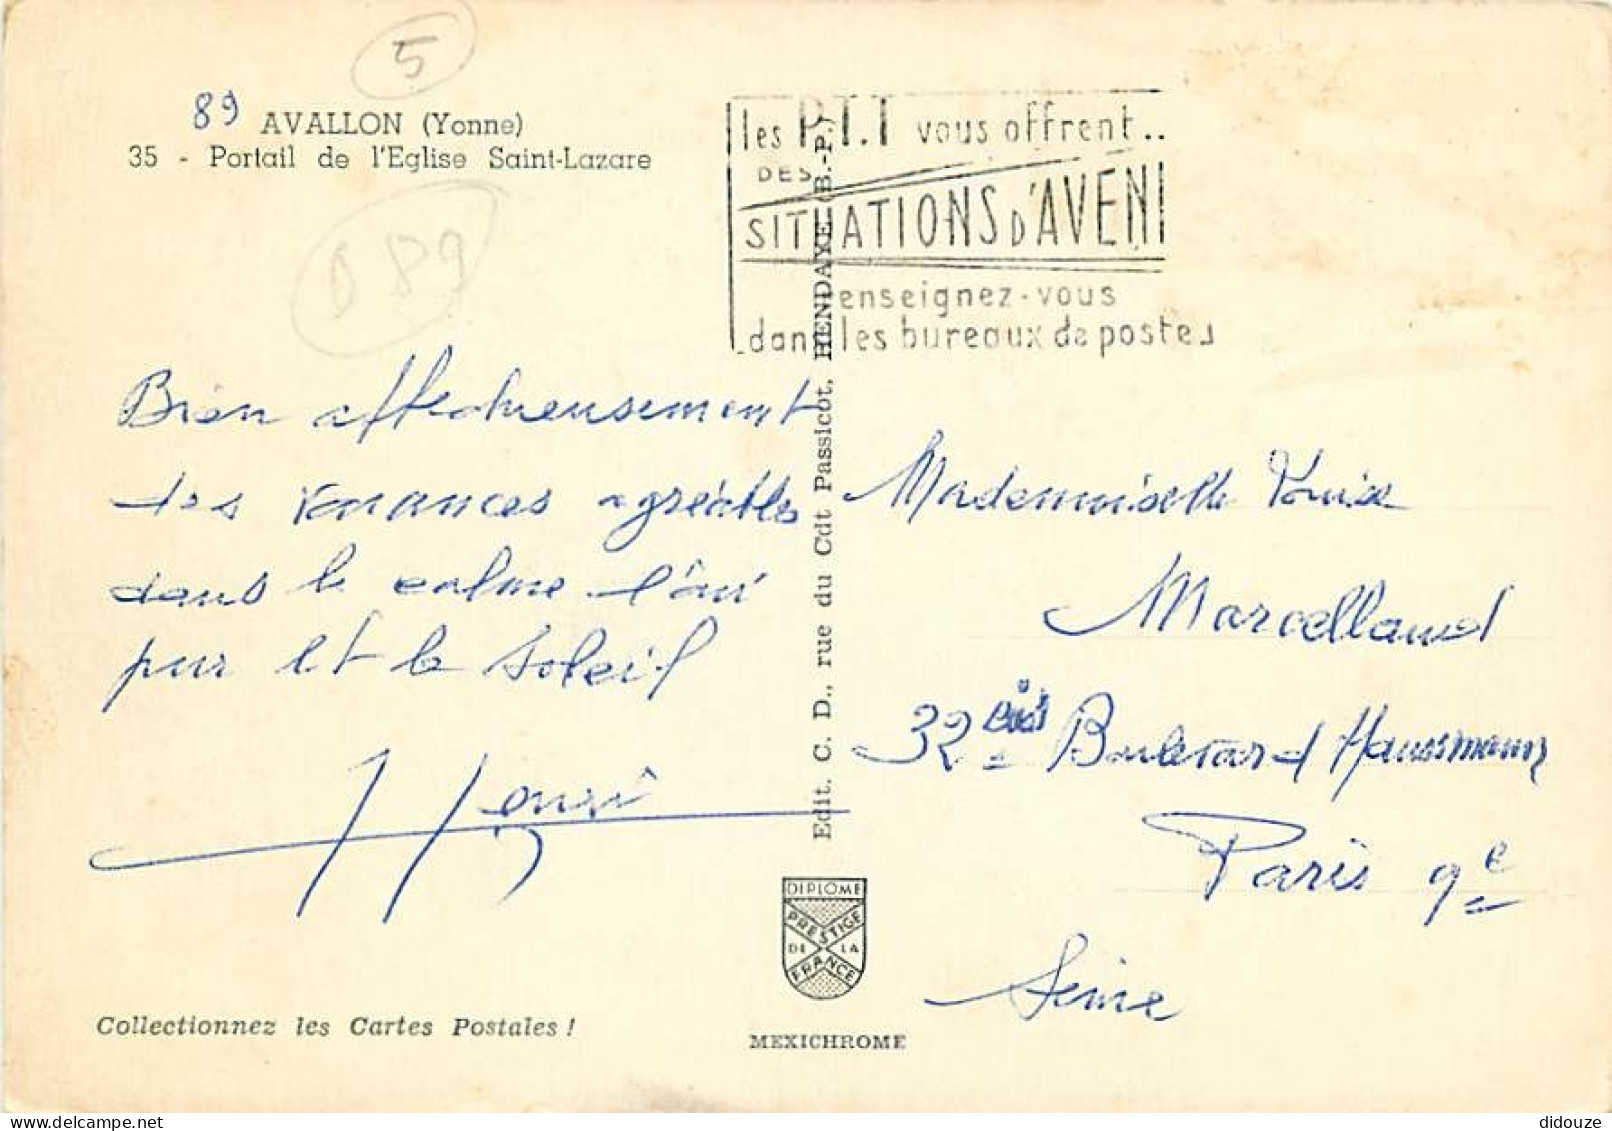 5
89 AVALLON (Yonne)
35 - Portail de l'Eglise Saint-Lazare
D 89
les P.T.T vous offrent..
DES
SITUATIONS D'AVENI
enseignez-vous
dans les bureaux de poste
Bien affectueusement
des vacances agréables
dans le calme l'air
pur et le soleil
Henri
Edit. C. D., rue du Cdt Passicot, HENDAYE (B.-P.)
Mademoiselle Louise
Marcelland
32 bis Boulevard Haussmann
Paris 9e
Seine
DIPLOME
PRESTIGE
DE LA
FRANCE
Collectionnez les Cartes Postales !
MEXICHROME
didouze